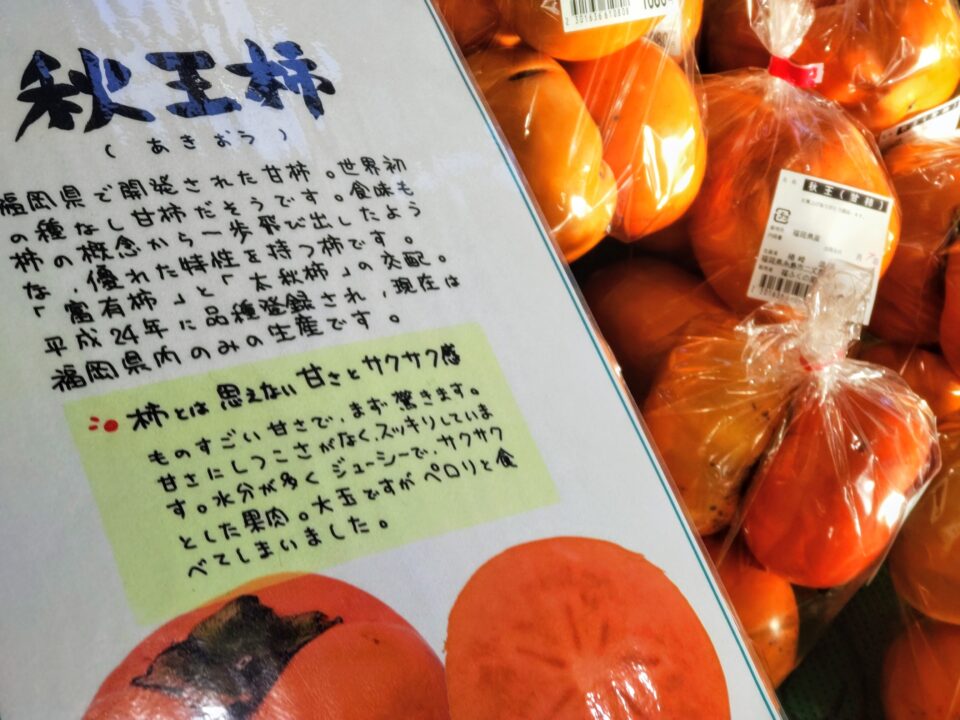 秋王柿
(あきおう)
福岡県で開発された甘柿。世界初
の種なし甘柿だそうです。食味も
柿の概念から一歩飛び出したよう
な、優れた特性を持つ柿です。
「富有柿」と「太秋柿」の交配。
平成24年に品種登録され、現在は
福岡県内のみの生産です。
柿とは思えない甘さとサクサク感
ものすごい甘さで、まず驚きます。
甘さにしつこさがなく、スッキリしていま
す。水分が多くジューシーで、サクサク
とした果肉。大玉ですがペロリと食
べてしまいました。
2301636610808
秋王(甘柿)
福岡県産